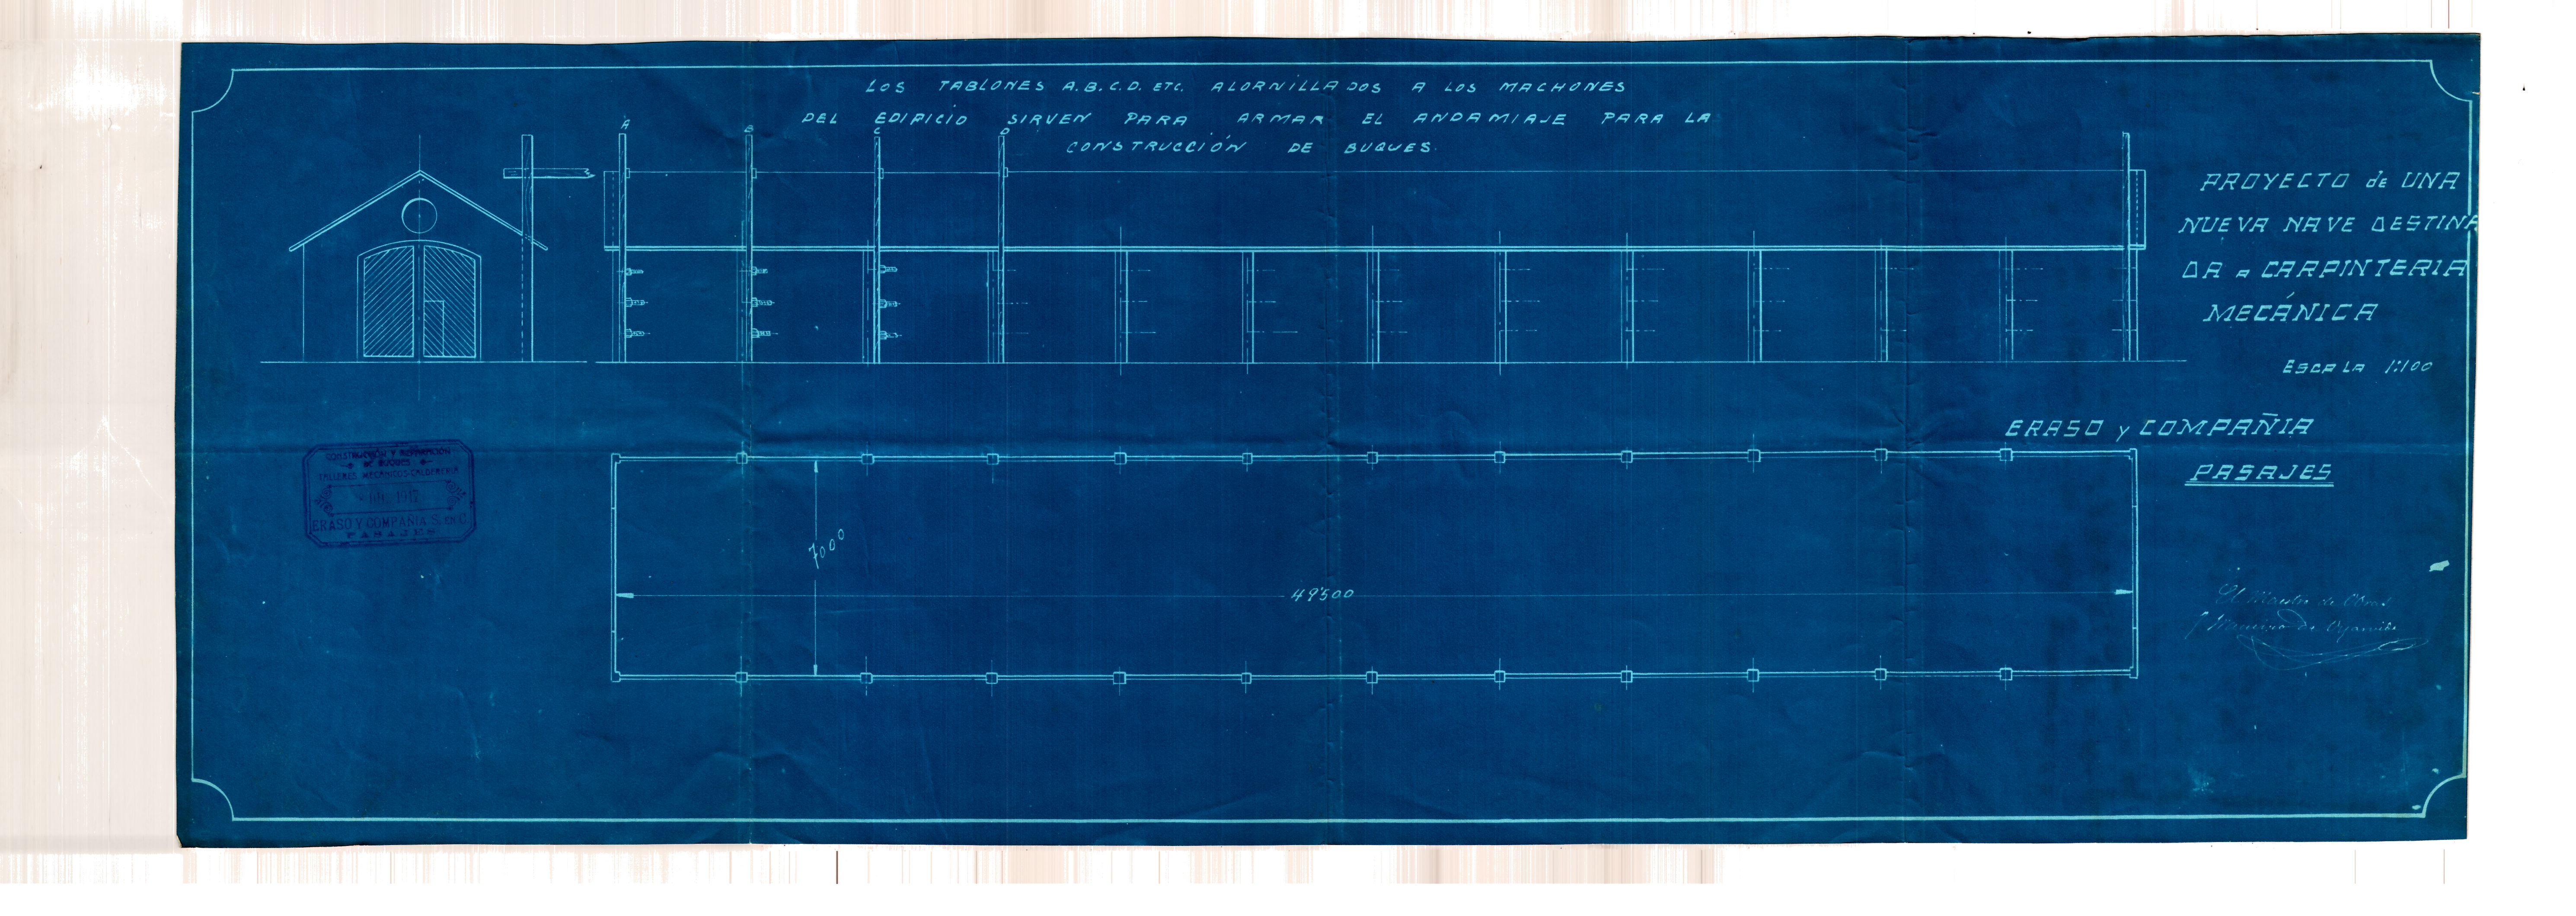 LOS TABLONES A.B.C.D. ETC. ALORNILLADOS A LOS MACHONES
DEL EDIFICIO SIRVEN PARA ARMAR EL ANDAMIAJE PARA LA
CONSTRUCCIÓN DE BUQUES.
A
B
C
D
PROYECTO de UNA
NUEVA NAVE DESTINA
DA a CARPINTERIA
MECÁNICA
ESCALA 1:100
ERASO y COMPAÑIA
PASAJES
CONSTRUCCIÓN Y REPARACIÓN
DE BUQUES
TALLERES MECÁNICOS-CALDERERÍA
1917
ERASO Y COMPAÑIA S. EN C.
PASAJES
7000
49500
El Maestro de Obras